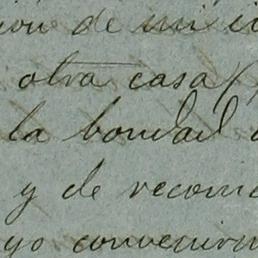 ion de mi i
otra casa (
la bondad
y de recom
yo convenien